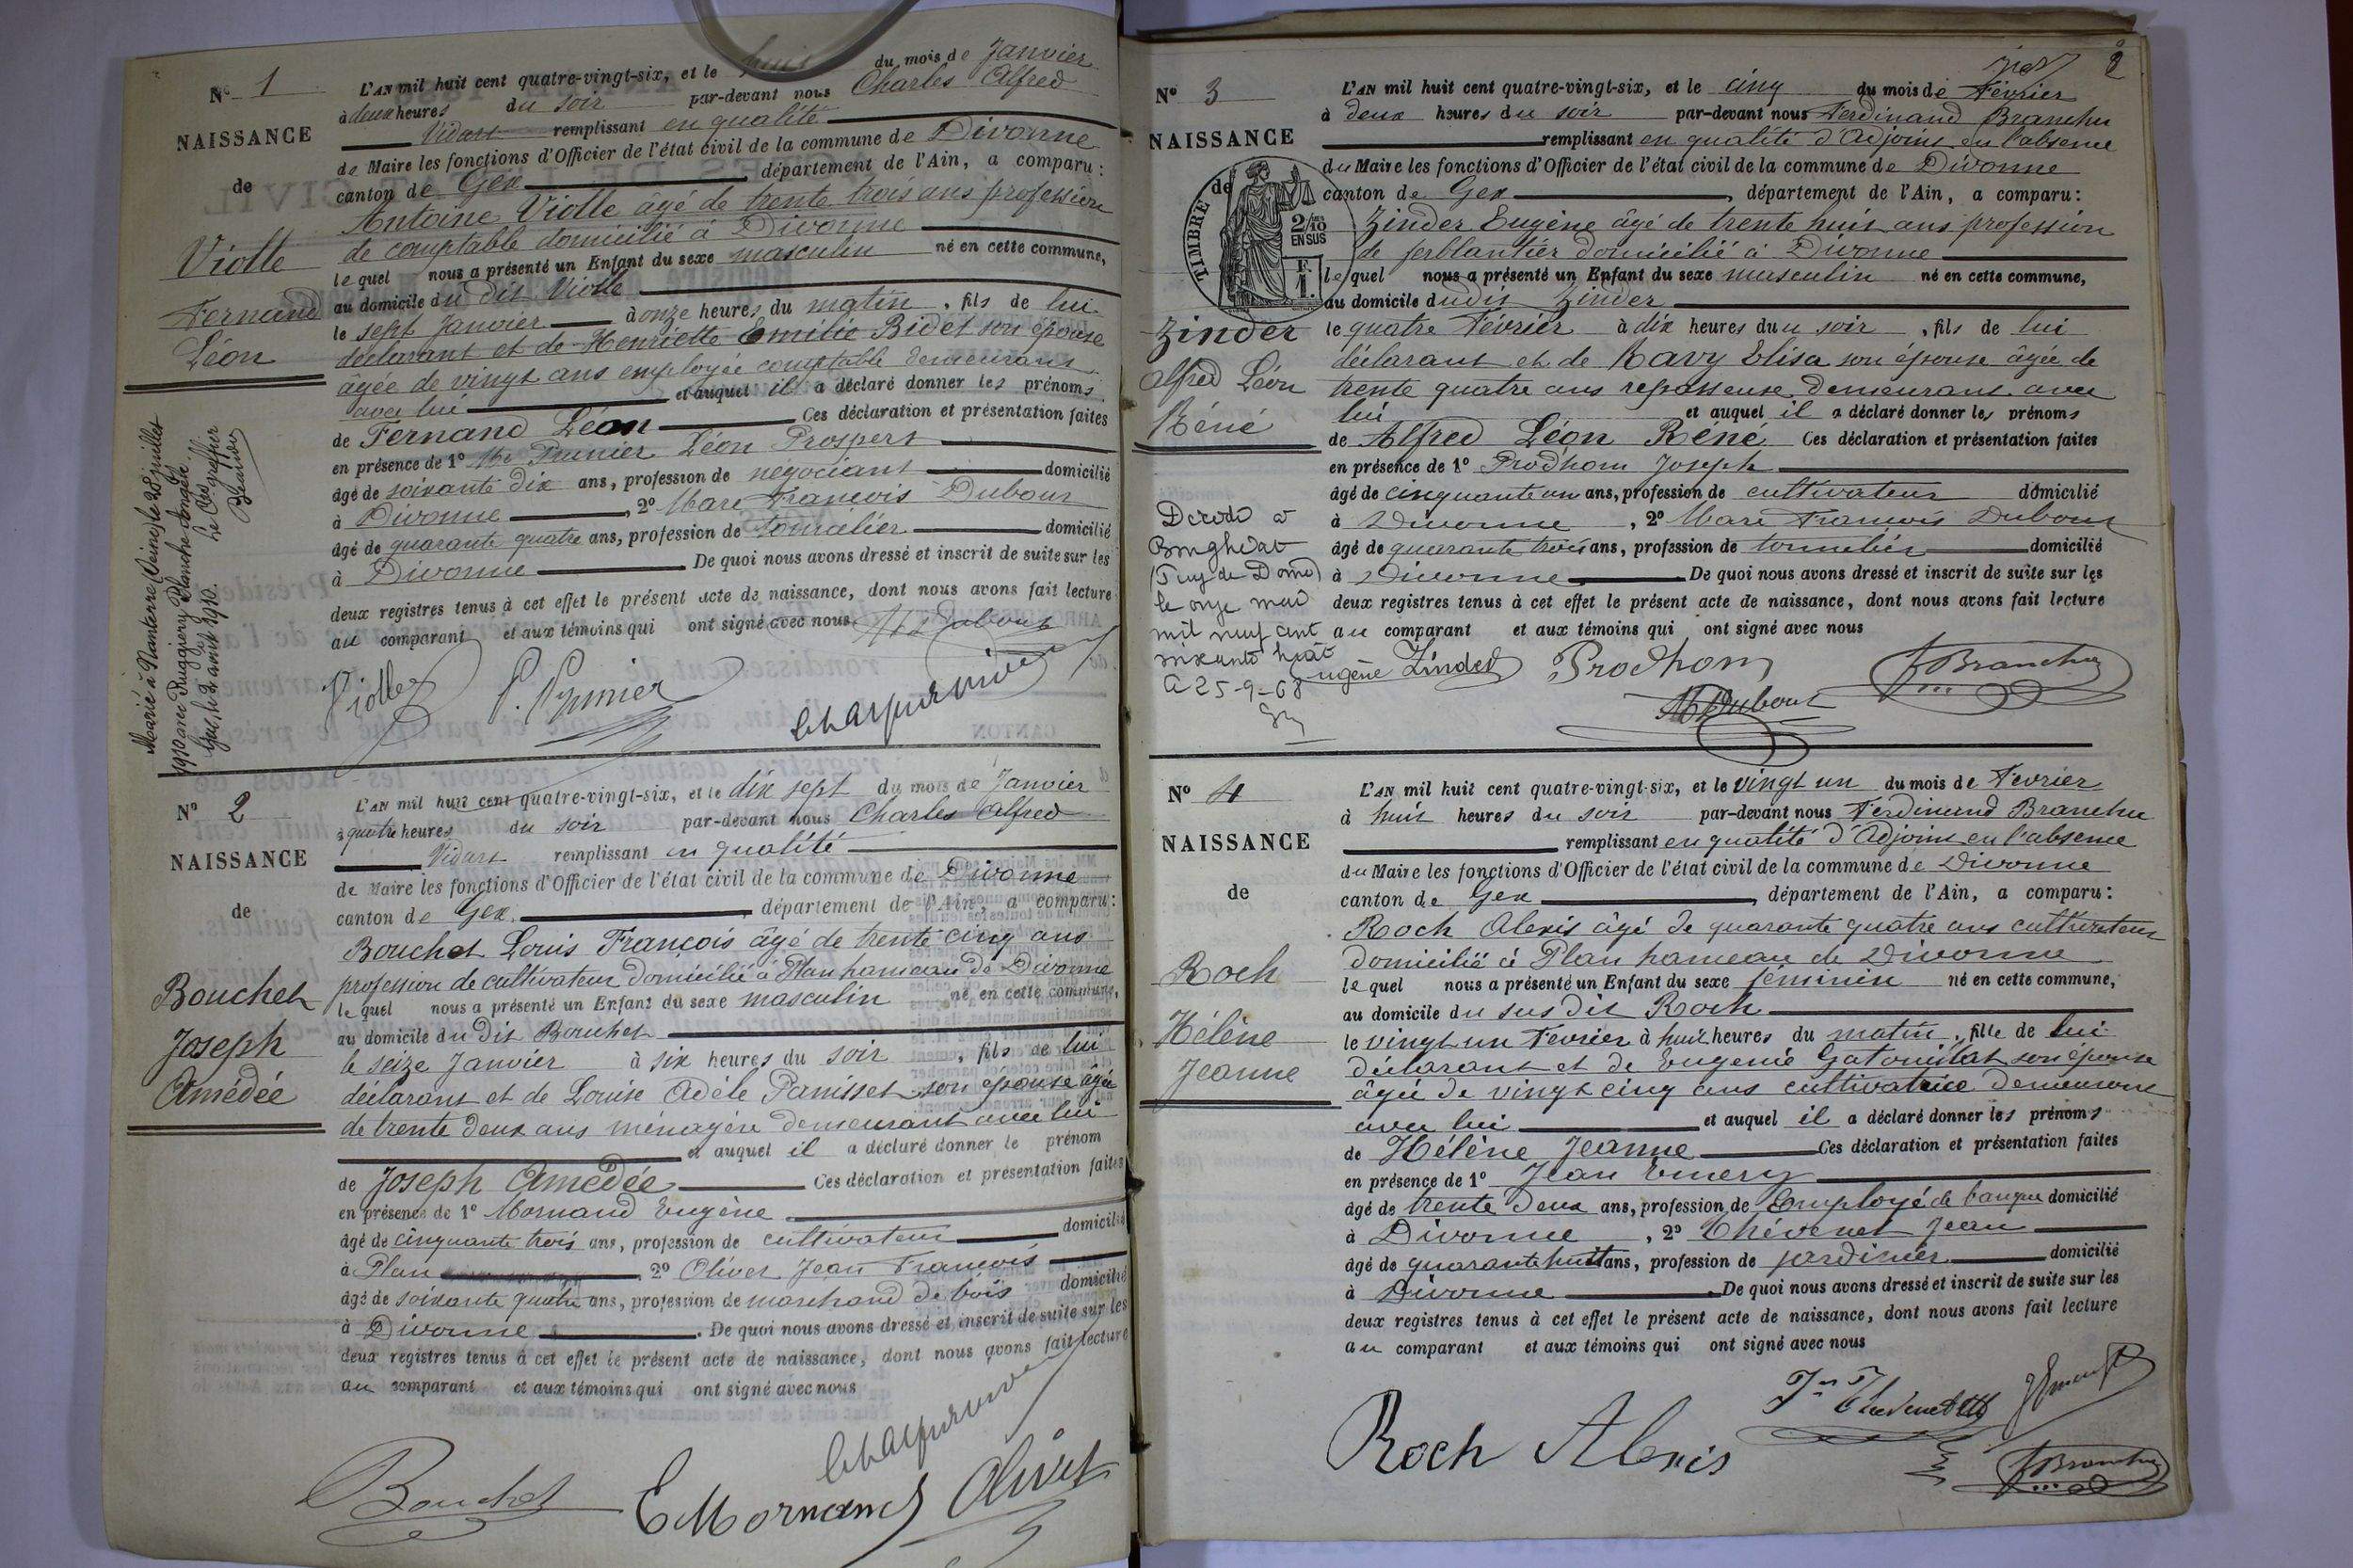 N° 1
NAISSANCE
de
Violle
Fernand
Léon
Marié à Nanterre (Seine) le 28 juillet
1910 avec Ruggieny Blanche Angèle
Gex, le 2 août 1910. Le Cis Greffier
L'AN mil huit cent quatre-vingt-six, et le huit du mois de Janvier
à deux heures du soir par-devant nous Charles Alfred
Vidart remplissant en qualité
de Maire les fonctions d'Officier de l'état civil de la commune de Divonne
canton de Gex département de l'Ain, a comparu:
Antoine Violle âgé de trente trois ans profession
de comptable domicilié à Divonne
lequel nous a présenté un Enfant du sexe masculin né en cette commune,
au domicile du dit Violle
le sept Janvier à onze heures du matin, fils de lui
déclarant et de Henriette Emilie Bidet son épouse
âgée de vingt ans employée comptable demeurant
avec lui et auquel il a déclaré donner les prénoms
de Fernand Léon Ces déclaration et présentation faites
en présence de 1° Mr Prunier Léon Prospert
âgé de soixante dix ans, profession de négociant domicilié
à Divonne, 2° Marc François Dubout
âgé de quarante quatre ans, profession de tonnelier domicilié
à Divonne De quoi nous avons dressé et inscrit de suite sur les
deux registres tenus à cet effet le présent acte de naissance, dont nous avons fait lecture
au comparant et aux témoins qui ont signé avec nous MDubout
Violle P. Prunier
N° 2
NAISSANCE
de
Bouchet
Joseph
Amédée
L'AN mil huit cent quatre-vingt-six, et le dix sept du mois de Janvier
à quatre heures du soir par-devant nous Charles Alfred
Vidart remplissant en qualité
de Maire les fonctions d'Officier de l'état civil de la commune de Divonne
canton de Gex, département de l'Ain, a comparu:
Bouchet Louis François âgé de trente cinq ans
profession de cultivateur domicilié à Plan hameau de Divonne
lequel nous a présenté un Enfant du sexe masculin né en cette commune,
au domicile du dit Bouchet
le seize Janvier à six heures du soir, fils de lui
déclarant et de Louise Adèle Panisset son épouse âgée
de trente deux ans ménagère demeurant avec lui
et auquel il a déclaré donner le prénom
de Joseph Amédée Ces déclaration et présentation faites
en présence de 1° Mornand Eugène
âgé de cinquante trois ans, profession de cultivateur domicilié
à Plan, 2° Olivet Jean François
âgé de soixante quatre ans, profession de marchand de bois domicilié
à Divonne. De quoi nous avons dressé et inscrit de suite sur les
deux registres tenus à cet effet le présent acte de naissance, dont nous avons fait lecture
au comparant et aux témoins qui ont signé avec nous
Bouchet E Mornand Olivet
2
N° 3
NAISSANCE
de
TIMBRE
2/10 EN SUS
Zinder
Alfred Léon
Réné
Décédé à
(Puy de Dome)
le onze mai
mil neuf cent
soixante huit
25-9-68
L'AN mil huit cent quatre-vingt-six, et le cinq du mois de Février
à deux heures du soir par-devant nous Ferdinand Branchu
remplissant en qualité d'Adjoint en l'absence
du Maire les fonctions d'Officier de l'état civil de la commune de Divonne
canton de Gex, département de l'Ain, a comparu:
Zinder Eugène âgé de trente huit ans profession
de ferblantier domicilié à Divonne
lequel nous a présenté un Enfant du sexe masculin né en cette commune,
au domicile dudit Zinder
le quatre Février à dix heures du soir, fils de lui
déclarant et de Ravy Elisa son épouse âgée de
trente quatre ans repasseuse demeurant avec
lui et auquel il a déclaré donner les prénoms
de Alfred Léon Réné Ces déclaration et présentation faites
en présence de 1° Prodhom Joseph
âgé de cinquante un ans, profession de cultivateur domicilié
à Divonne, 2° Marc François Dubout
âgé de quarante trois ans, profession de tonnelier domicilié
à Divonne De quoi nous avons dressé et inscrit de suite sur les
deux registres tenus à cet effet le présent acte de naissance, dont nous avons fait lecture
au comparant et aux témoins qui ont signé avec nous
Eugène Zinder Prodhom FBranchu
MDubout
N° 4
NAISSANCE
de
Roch
Hélène
Jeanne
L'AN mil huit cent quatre-vingt-six, et le vingt un du mois de Février
à huit heures du soir par-devant nous Ferdinand Branchu
remplissant en qualité d'Adjoint en l'absence
du Maire les fonctions d'Officier de l'état civil de la commune de Divonne
canton de Gex, département de l'Ain, a comparu:
Roch Alexis âgé de quarante quatre ans cultivateur
domicilié à Plan hameau de Divonne
lequel nous a présenté un Enfant du sexe féminin né en cette commune,
au domicile du sus dit Roch
le vingt un Février à huit heures du matin, fille de lui
déclarant et de Eugenie son épouse
âgée de vingt cinq ans cultivatrice demeurant
avec lui et auquel il a déclaré donner les prénoms
de Hélène Jeanne Ces déclaration et présentation faites
en présence de 1° Jean Emery
âgé de trente deux ans, profession de Employé de banque domicilié
à Divonne, 2° Thévenet Jean
âgé de quarante huit ans, profession de jardinier domicilié
à Divonne. De quoi nous avons dressé et inscrit de suite sur les
deux registres tenus à cet effet le présent acte de naissance, dont nous avons fait lecture
au comparant et aux témoins qui ont signé avec nous
Roch Alexis
FBranchu